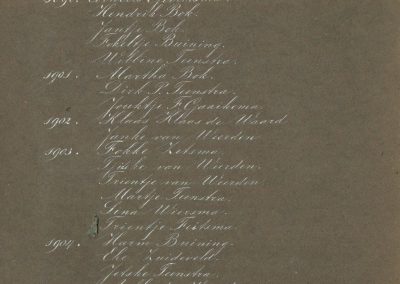 Hendrik Bok.
Jantje Bok.
Fekeltje Buining.
Wibbine Teenstra.
1901. Martha Bok.
Dirk P. Teenstra.
Jouktje F. Gaaikema.
1902. Klaas Klaas de Waard
Janke van Weerden
1903. Fokke Zetsma.
van Weerden.
Trientje van Weerden
Martje Teenstra.
Lena Wiersma.
Trientje Feitsma.
1904. Harm Buining.
Eke Zuideveld.
Jetske Teenstra.